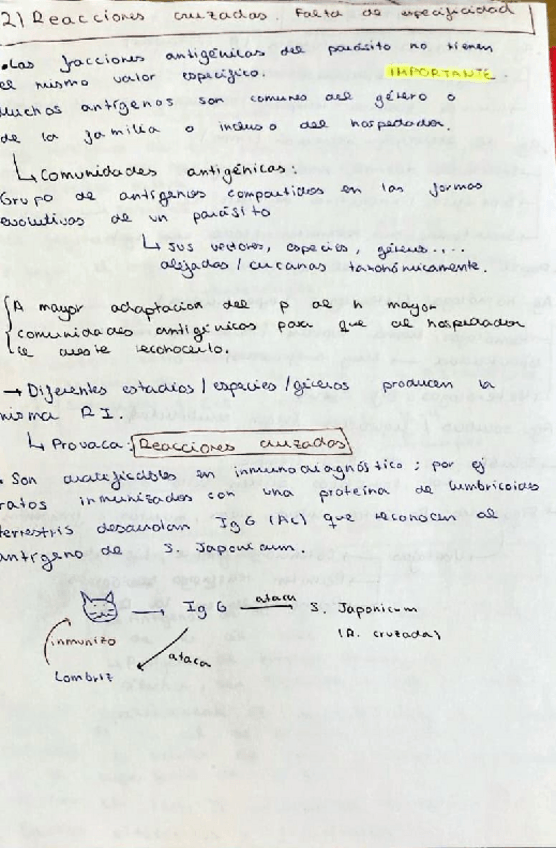 2) Reacciones cruzadas. Falta de especificidad
• Las fracciones antigénicas del parásito no tienen
el mismo valor específico. IMPORTANTE.
Muchos antígenos son comunes del género o
de la familia o incluso del hospedador.
↳ Comunidades antigénicas:
Grupo de antígenos compartidos en las formas
evolutivas de un parásito
↳ Sus vectores, especies, géneros....
alejados / cercanas taxonómicamente.
A mayor adaptación del p al h mayor
comunidades antigénicas para que al hospedador
le cueste reconocerlo.
→ Diferentes estadios / especies / géneros producen la
misma R I.
↳ Provoca: Reacciones cruzadas
• Son cuantificables en inmunodiagnóstico; por ej
ratos inmunizados con una proteína de lumbricoides
terrestris desarrollan IgG (Ac) que reconocen al
antígeno de S. Japonicum.
→ IgG ataca → S. Japonicum
(R. cruzada)
inmunizo
ataca
Lombriz